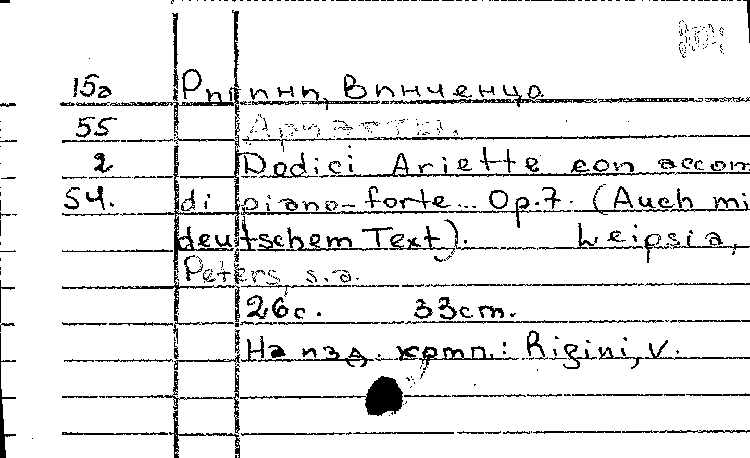 15а Ригини, Винченцо
55 Ариэтты.
2 Dodici Ariette con accom
54. di piano-forte... Op.7. (Auch mi
deutschem Text). Leipsia,
Peters, s.a.
26с. 33cm.
На изд. комп.: Rigini, V.